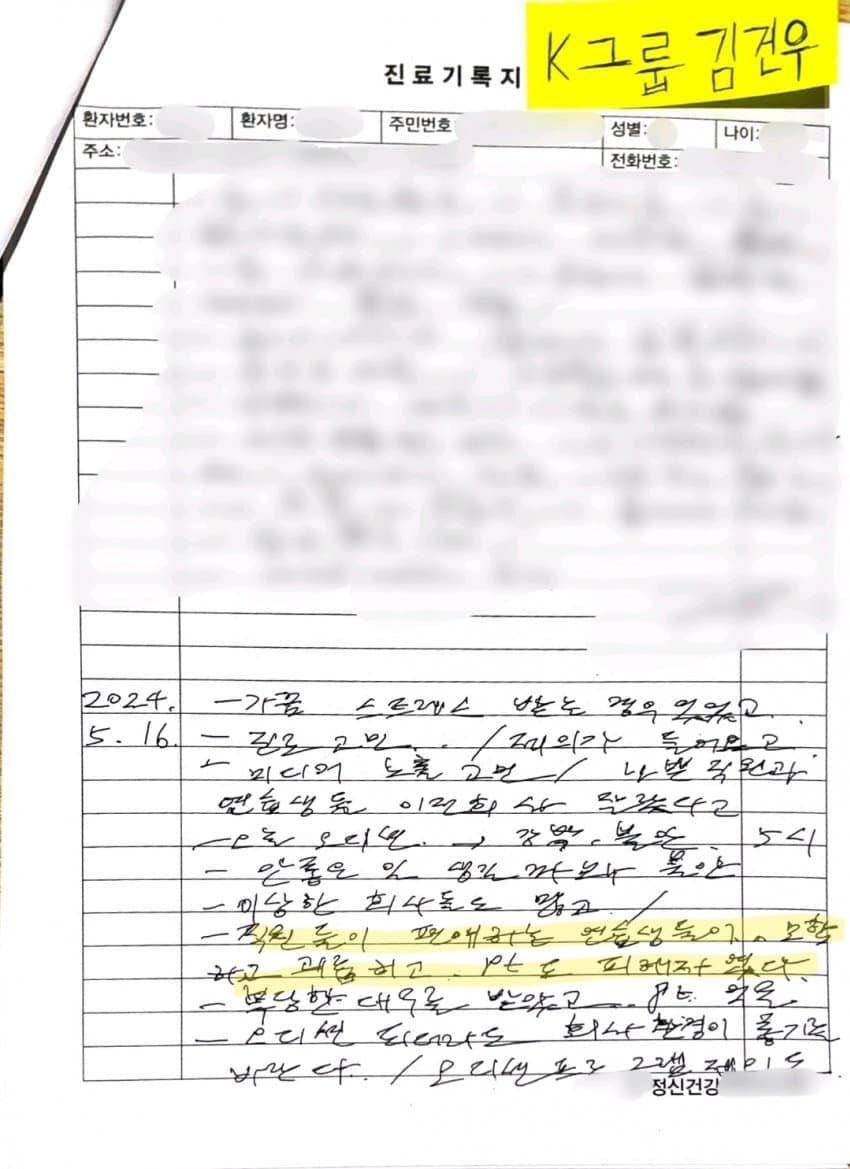 K그룹 김건우
진료기록지
환자번호: 환자명: 주민번호 성별: 나이:
주소: 전화번호:
2024. - 가끔 스트레스 받는 경우 있었고.
5. 16. - 진로 고민.. / 제의가 들어오고.
- 미디어 노출 고민 / 나쁜 직원과
연습생들 이전회사 잘랐다고
- 오늘 오디션. → 강박, 불안. 5시
- 안좋은 일 생길까봐 불안
- 이상한 회사들도 많고. /
- 직원들이 편애하는 연습생들이. 모함
하고 괴롭히고. pt도 피해자였다.
- 부당한 대우를 받았고.. pt. 억울
- 오디션 되더라도 회사 환경이 좋기를
바란다. / 오디션 프로그램 제의도
정신건강